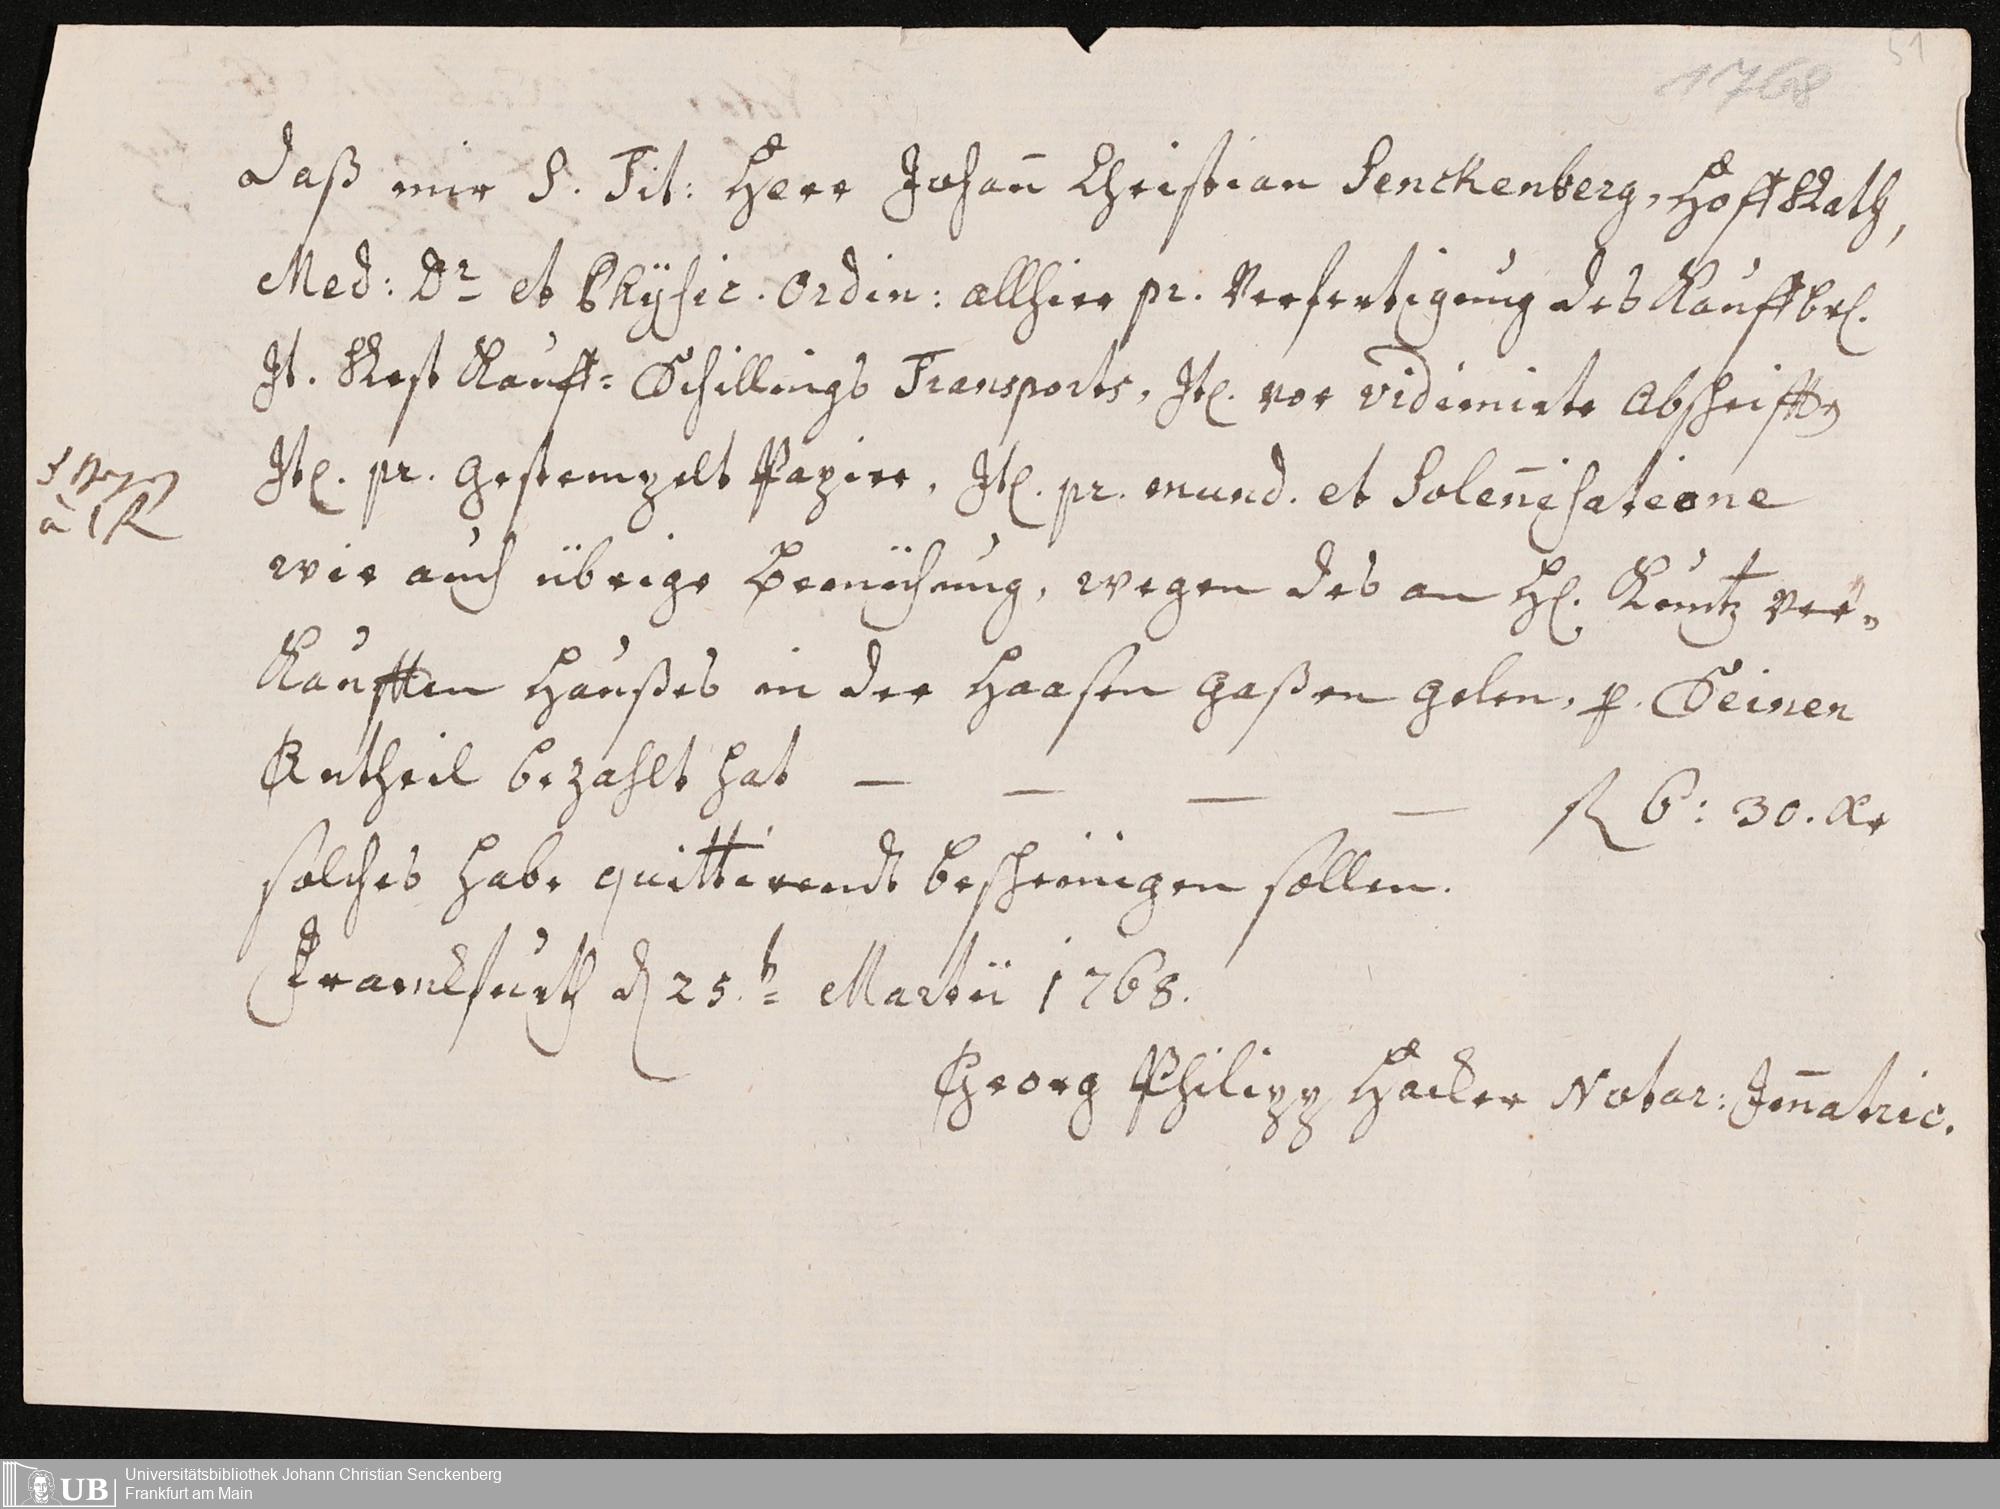 51
1768
Daß mir S. Tit: Herr Johann̄ Christian Senckenberg, Hoff Rath,
Med: Dr et Physic. Ordin: allhier pr. Verfertigung des Kauffbrl.
It. Rest Kauff= Schillings Transports, Itl. vor vidimirte Abschrifft
Itl. pr. gestempelt Papier, Itl. pr. mund. et Solen̄isatione
à 1 R
wie auch übrige Bemühung, wegen des an Hl. Kuntz ver=
kaufften Haußes in der Haasen gaßen gelen, p. Seinen
Antheil bezahlt hat — — — — fl 6: 30. Xr
solches habe quittirendt bescheinigen sollen.
Franckfurth d 25.t= Martii 1768.
Georg Philipp Hacker Notar: Im̄atric.
UB
Universitätsbibliothek Johann Christian Senckenberg
Frankfurt am Main